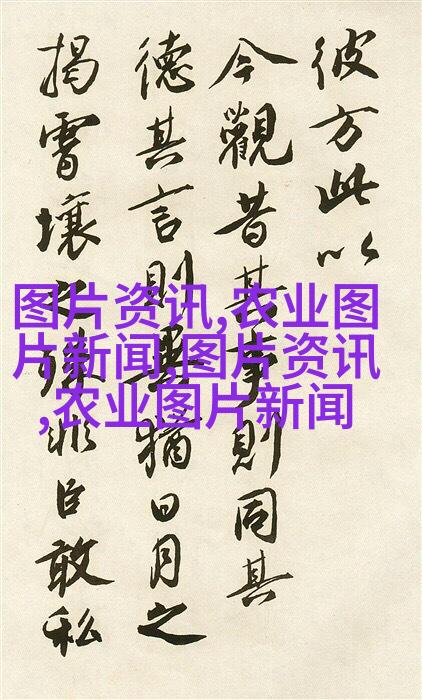 彼方此以
今觀昔其事則同其
德其言則異猶日月之
揭霄壤之殊非臣敢私
图片资讯,农业图
片新闻,图片资讯
,农业图片新闻